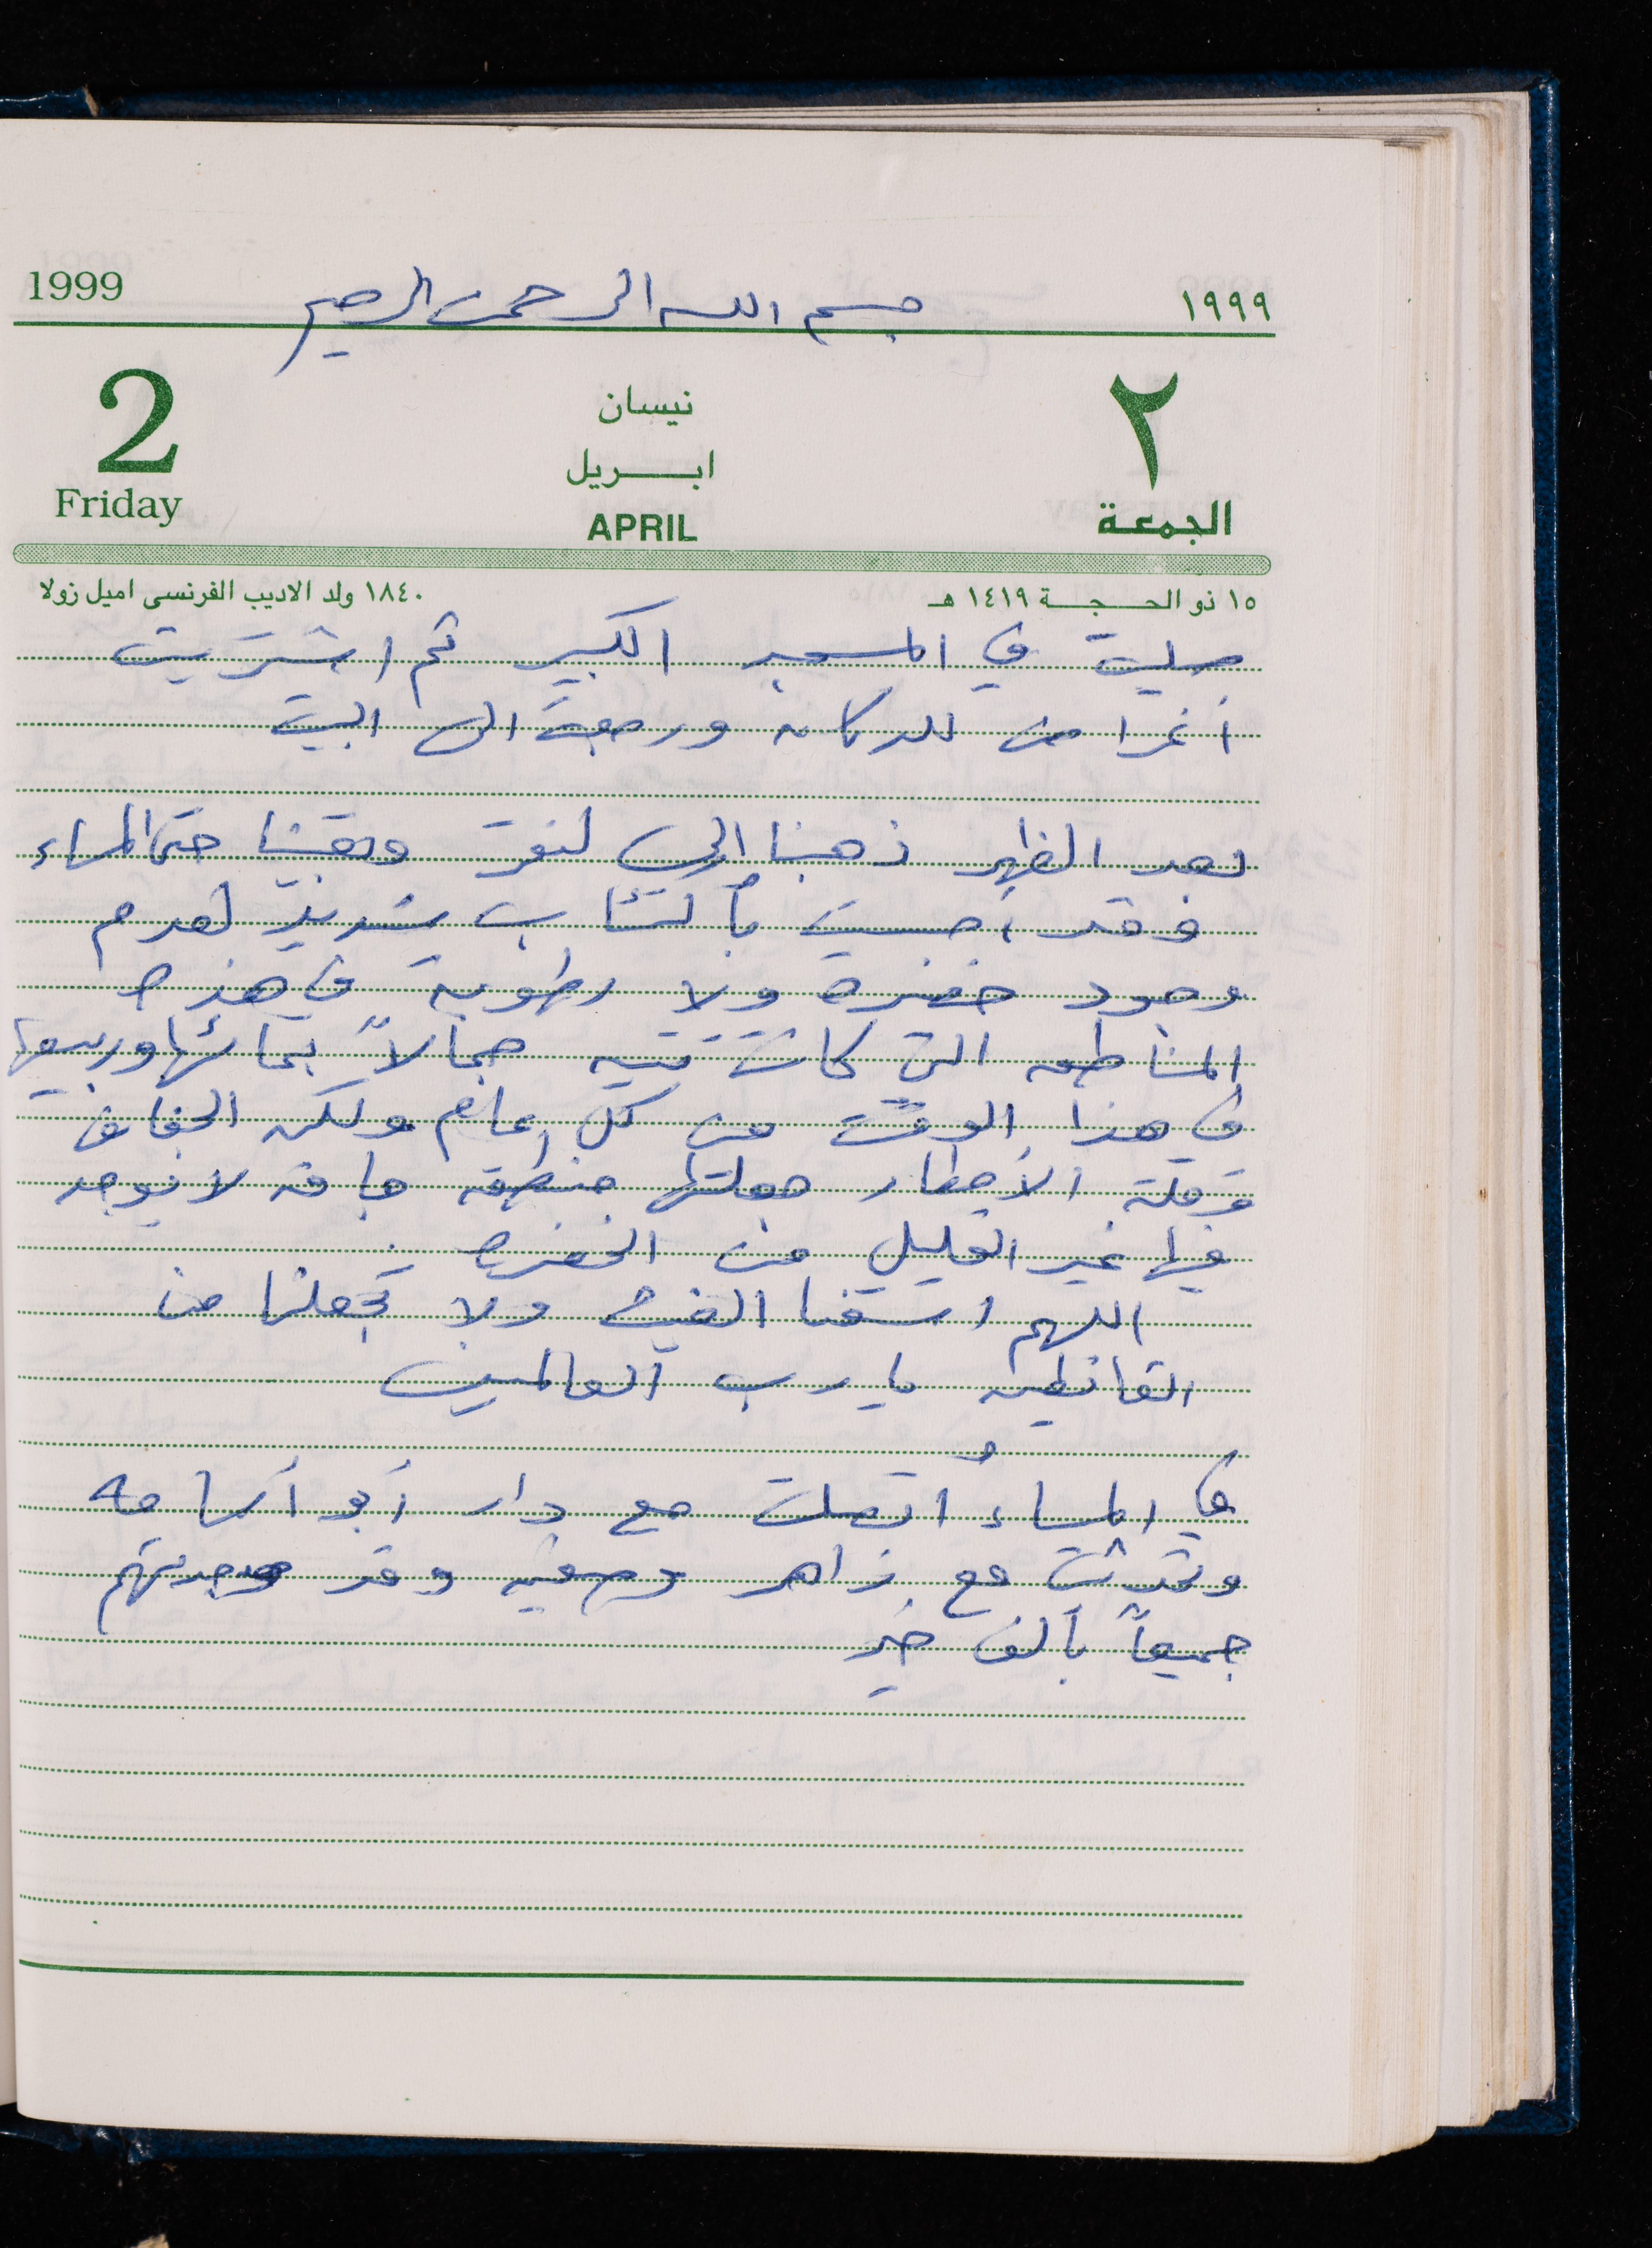 1999 بسم الله الرحمن الرحيم ١٩٩٩
2 نيسان ٢
ابـــريل
Friday APRIL الجمعة
١٥ ذو الحـجـــة ١٤١٩ هـ ١٨٤٠ ولد الاديب الفرنسى اميل زولا
صليت في المسجد الكبير ثم اشتريت
أغراض للدكانه ورجعت الى البيت
بعد الظهر ذهبنا الى وبقينا حتى المساء
وقد أحسست بأكتئاب شديد لعدم
وجود خضرة ولا رطوبة في هذه
المناطق التي كانت تتيه جمالاً بمائها وربيعها
في هذا الوقت من كل عام ولكن الجفاف
وقلة الأمطار جعلتها منطقة جافة لا يوجد
فيها غير القليل من الخضرة .
اللهم اسقنا الغيث ولا تجعلنا من
القانطين يا رب العالمين
في المساء أتصلت مع دار أبو أسامه
وتحدثت مع زاهر وصفيه وقد وجدتهم
جميعاً بألف خير